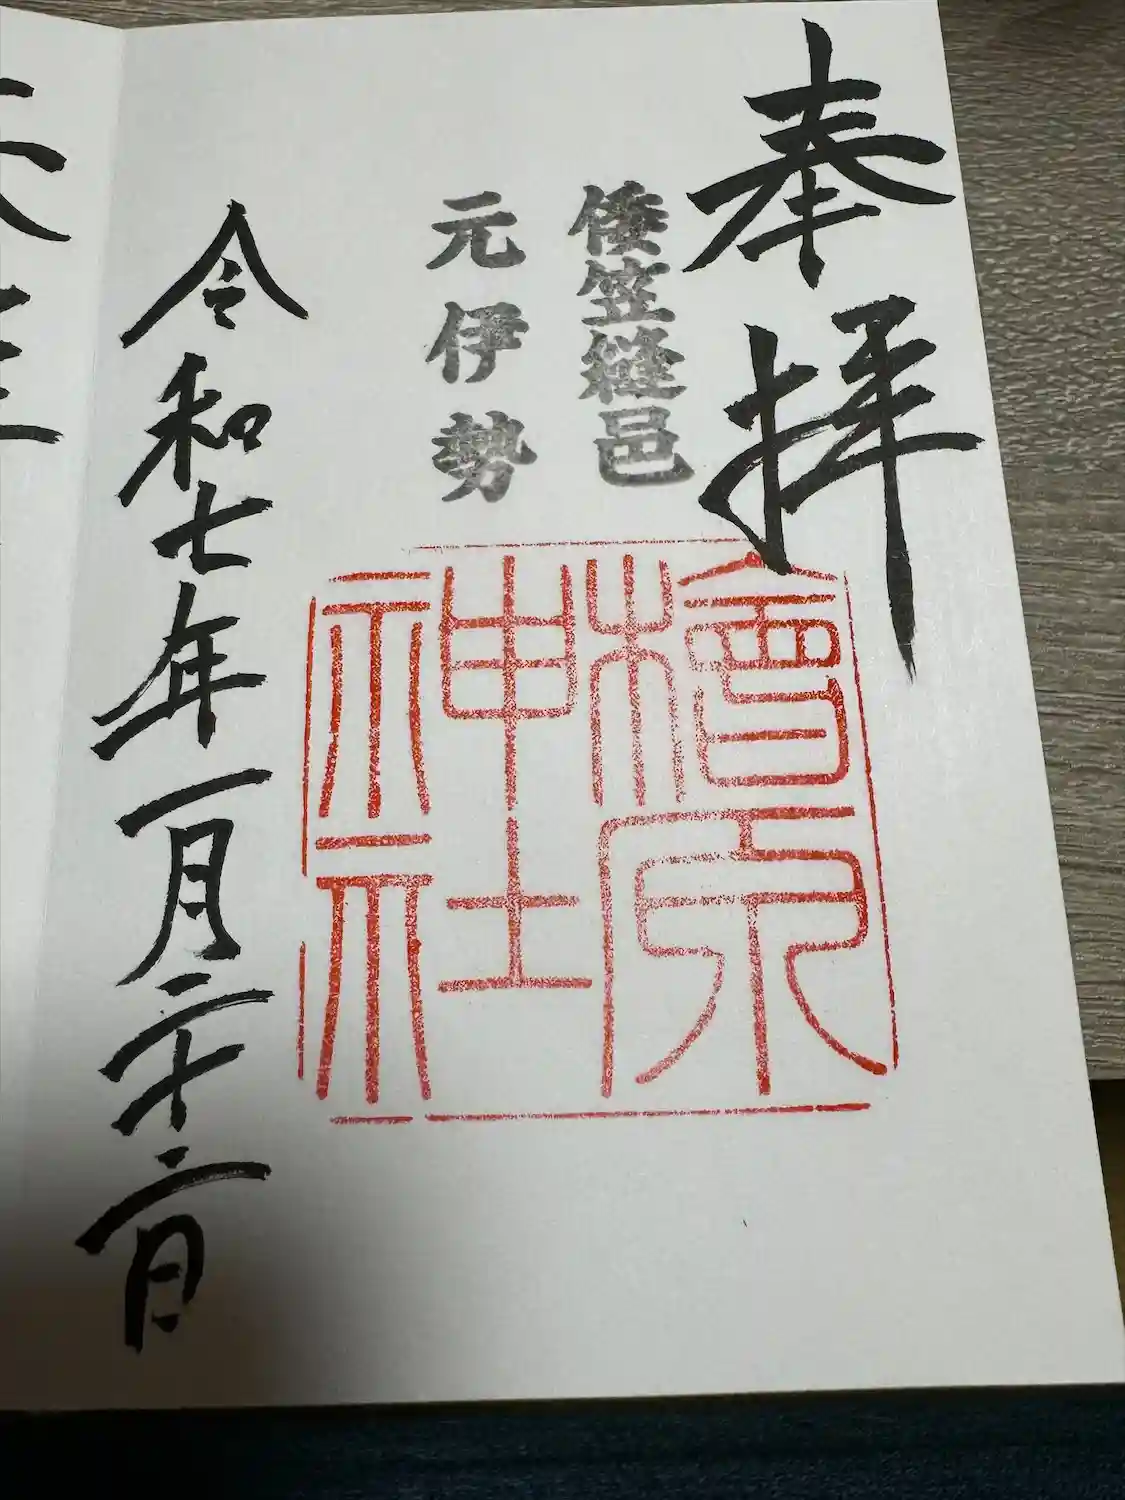 奉拝
倭笠縫邑
元伊勢
檜原
神社
令和七年一月二十二日